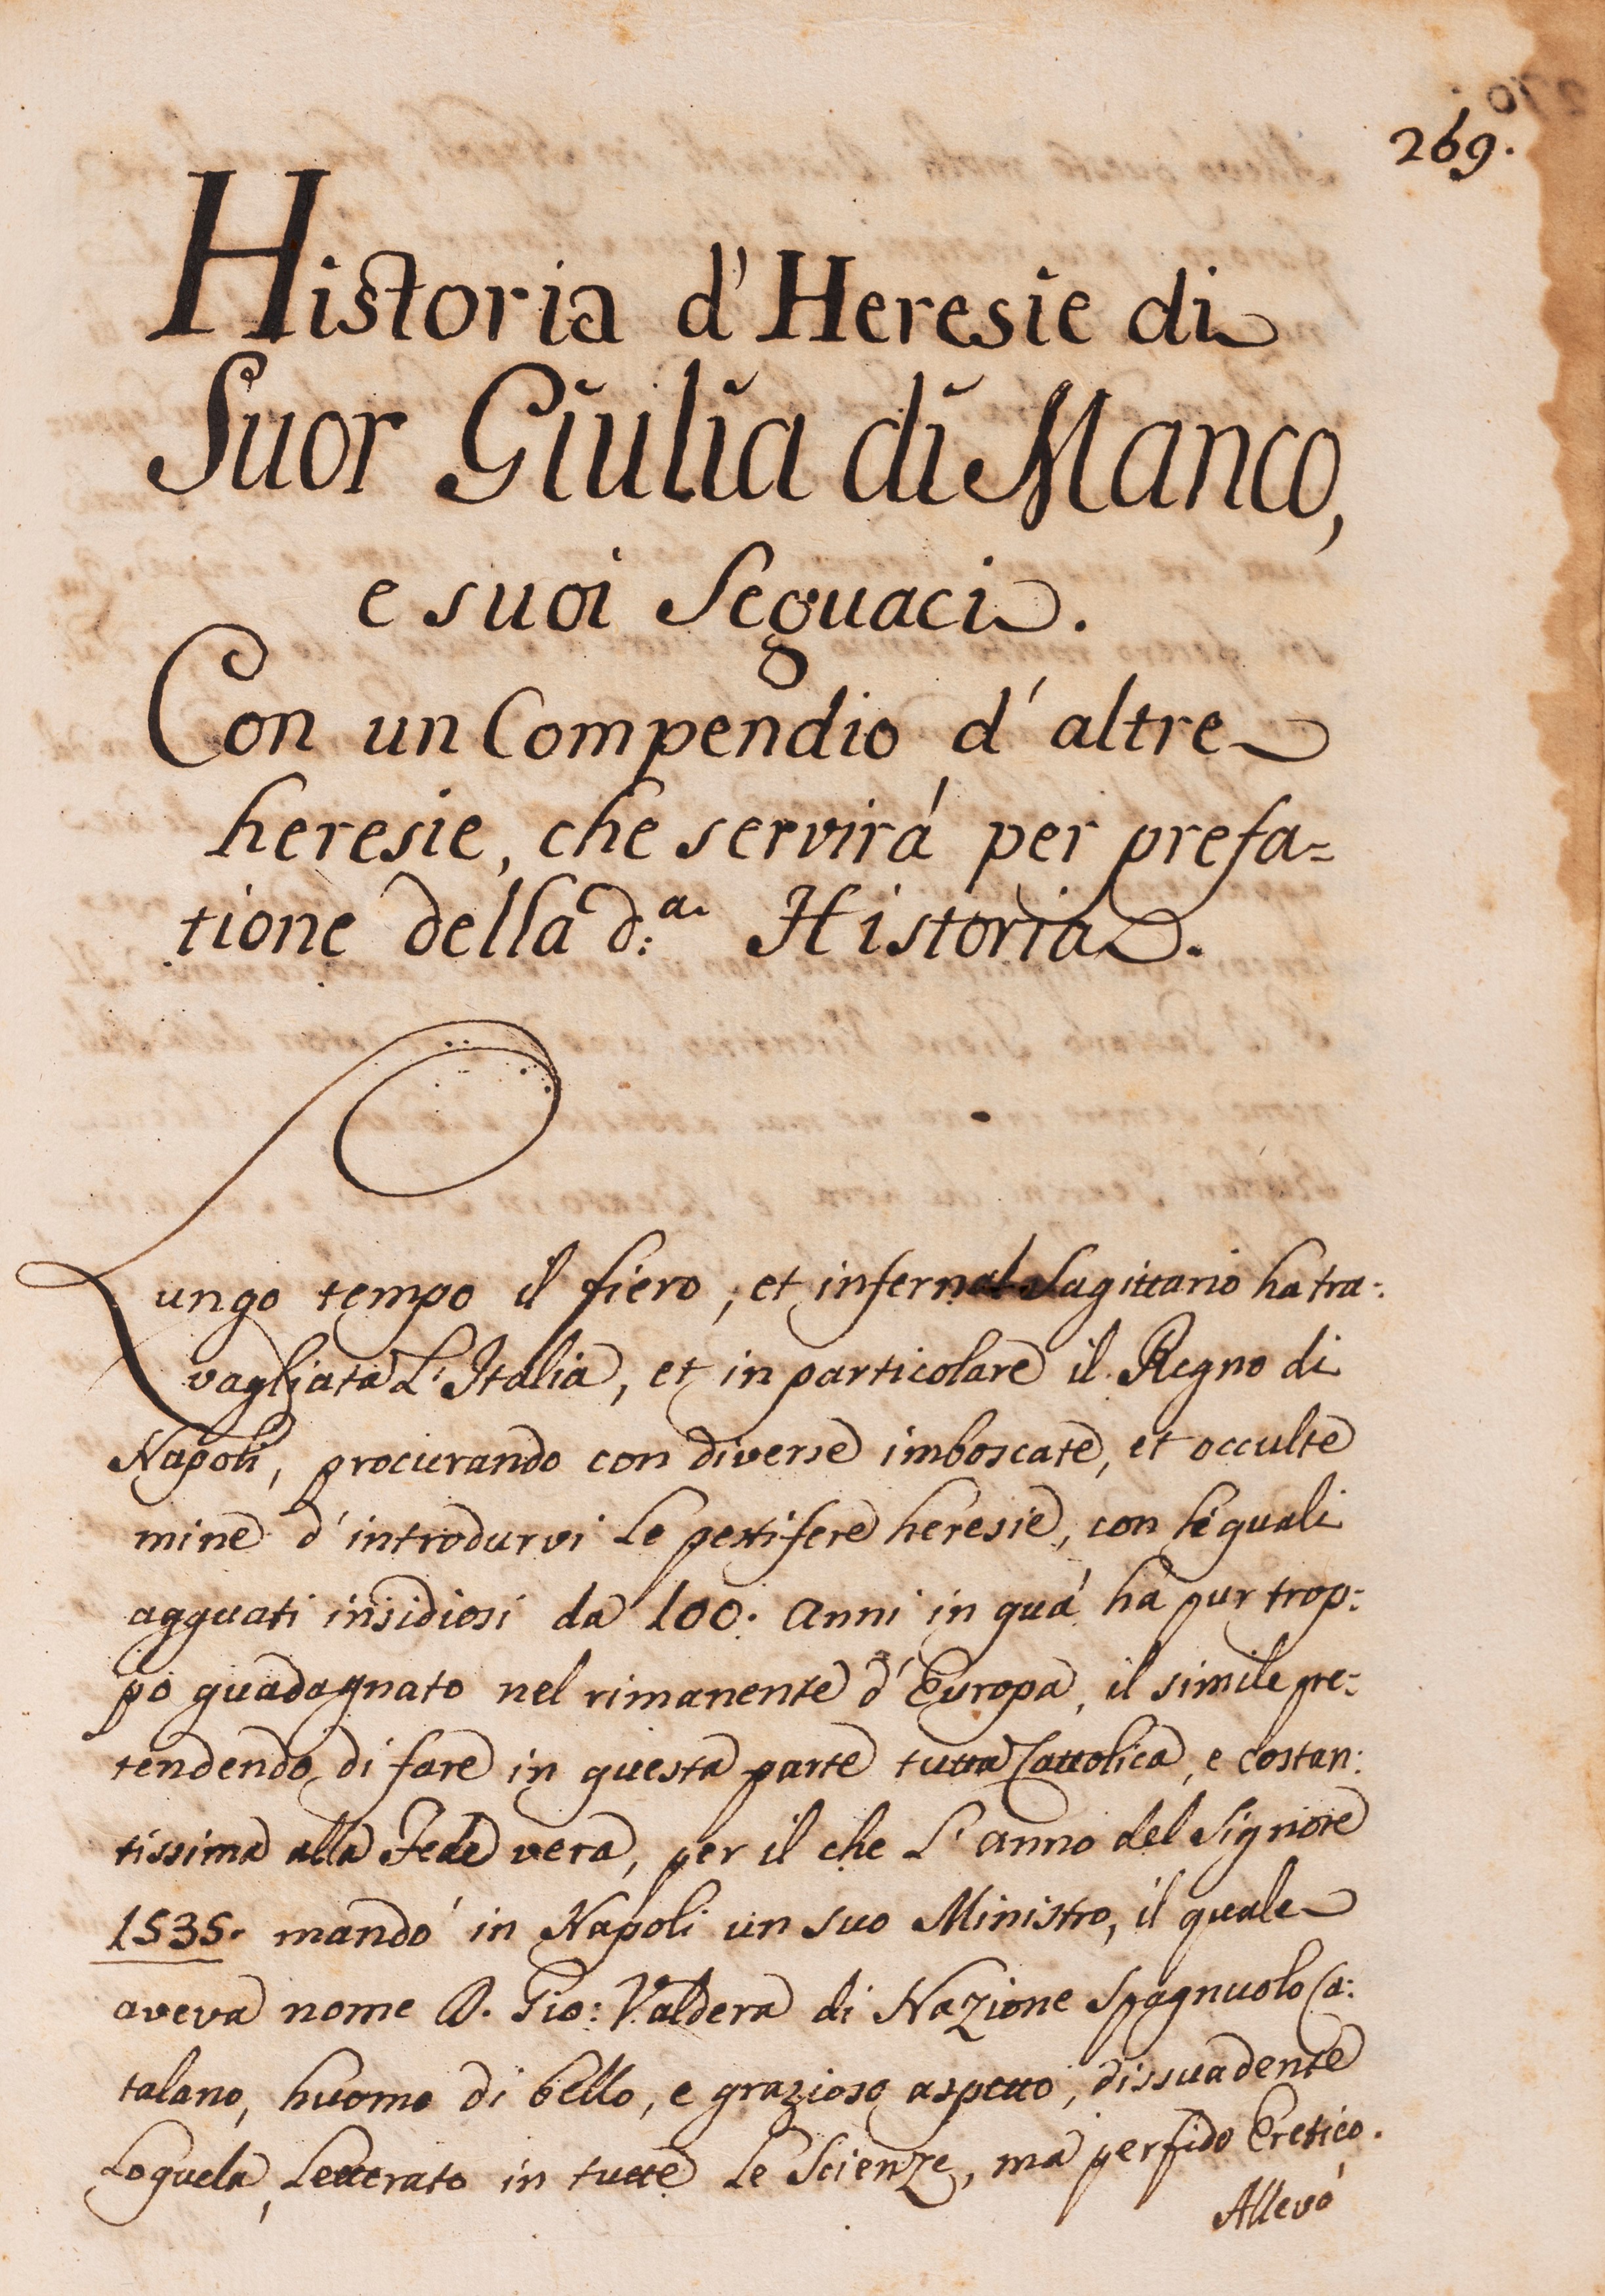 269.
Historia d'Heresie di
Suor Giulia di Manco,
e suoi Seguaci.
Con un Compendio d'altre
heresie, che servirà per prefa=
tione della d:ª Historia.
Lungo tempo il fiero, et infernal Sagittario ha tra:
vagliata L'Italia, et in particolare il Regno di
Napoli, procurando con diverse imboscate, et occulte
mine d'introdurvi le pestifere heresie, con le quali
agguati insidiosi da 100. Anni in quà hà pur trop:
po guadagnato nel rimanente d'Europa, il simile pre:
tendendo di fare in questa parte tutta Cattolica, e costan:
tissima alla Fede vera, per il che L'anno del Signore
1535. mandò in Napoli un suo Ministro, il quale
aveva nome D. Gio: Valdera di Nazione Spagnuolo Ca:
talano, huomo di bello, e grazioso aspetto, dissuadente
Loquela, Letterato in tutte Le Scienze, mà perfido Eretico.
Allevò